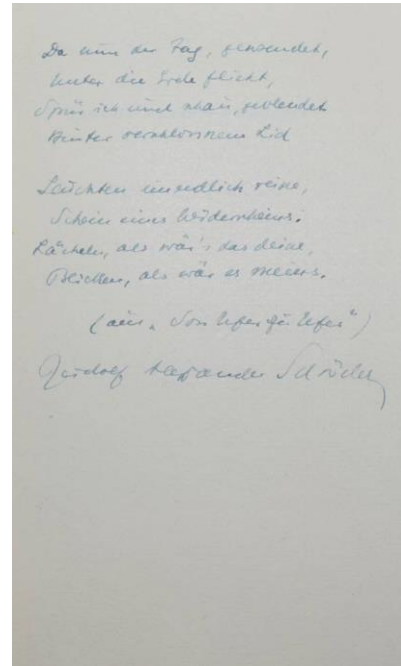 Da nun der Tag, gewendet,
Unter die Erde flieht,
Spür ich und schau, geblendet
Hinter verschlossnem Lid

Leuchten unendlich reine,
Schein eines Widerscheins.
Lächeln, als wär's das deine,
Blicken, als wär es meins.

(aus „Von Ufer zu Ufer")
Rudolf Alexander Schröder